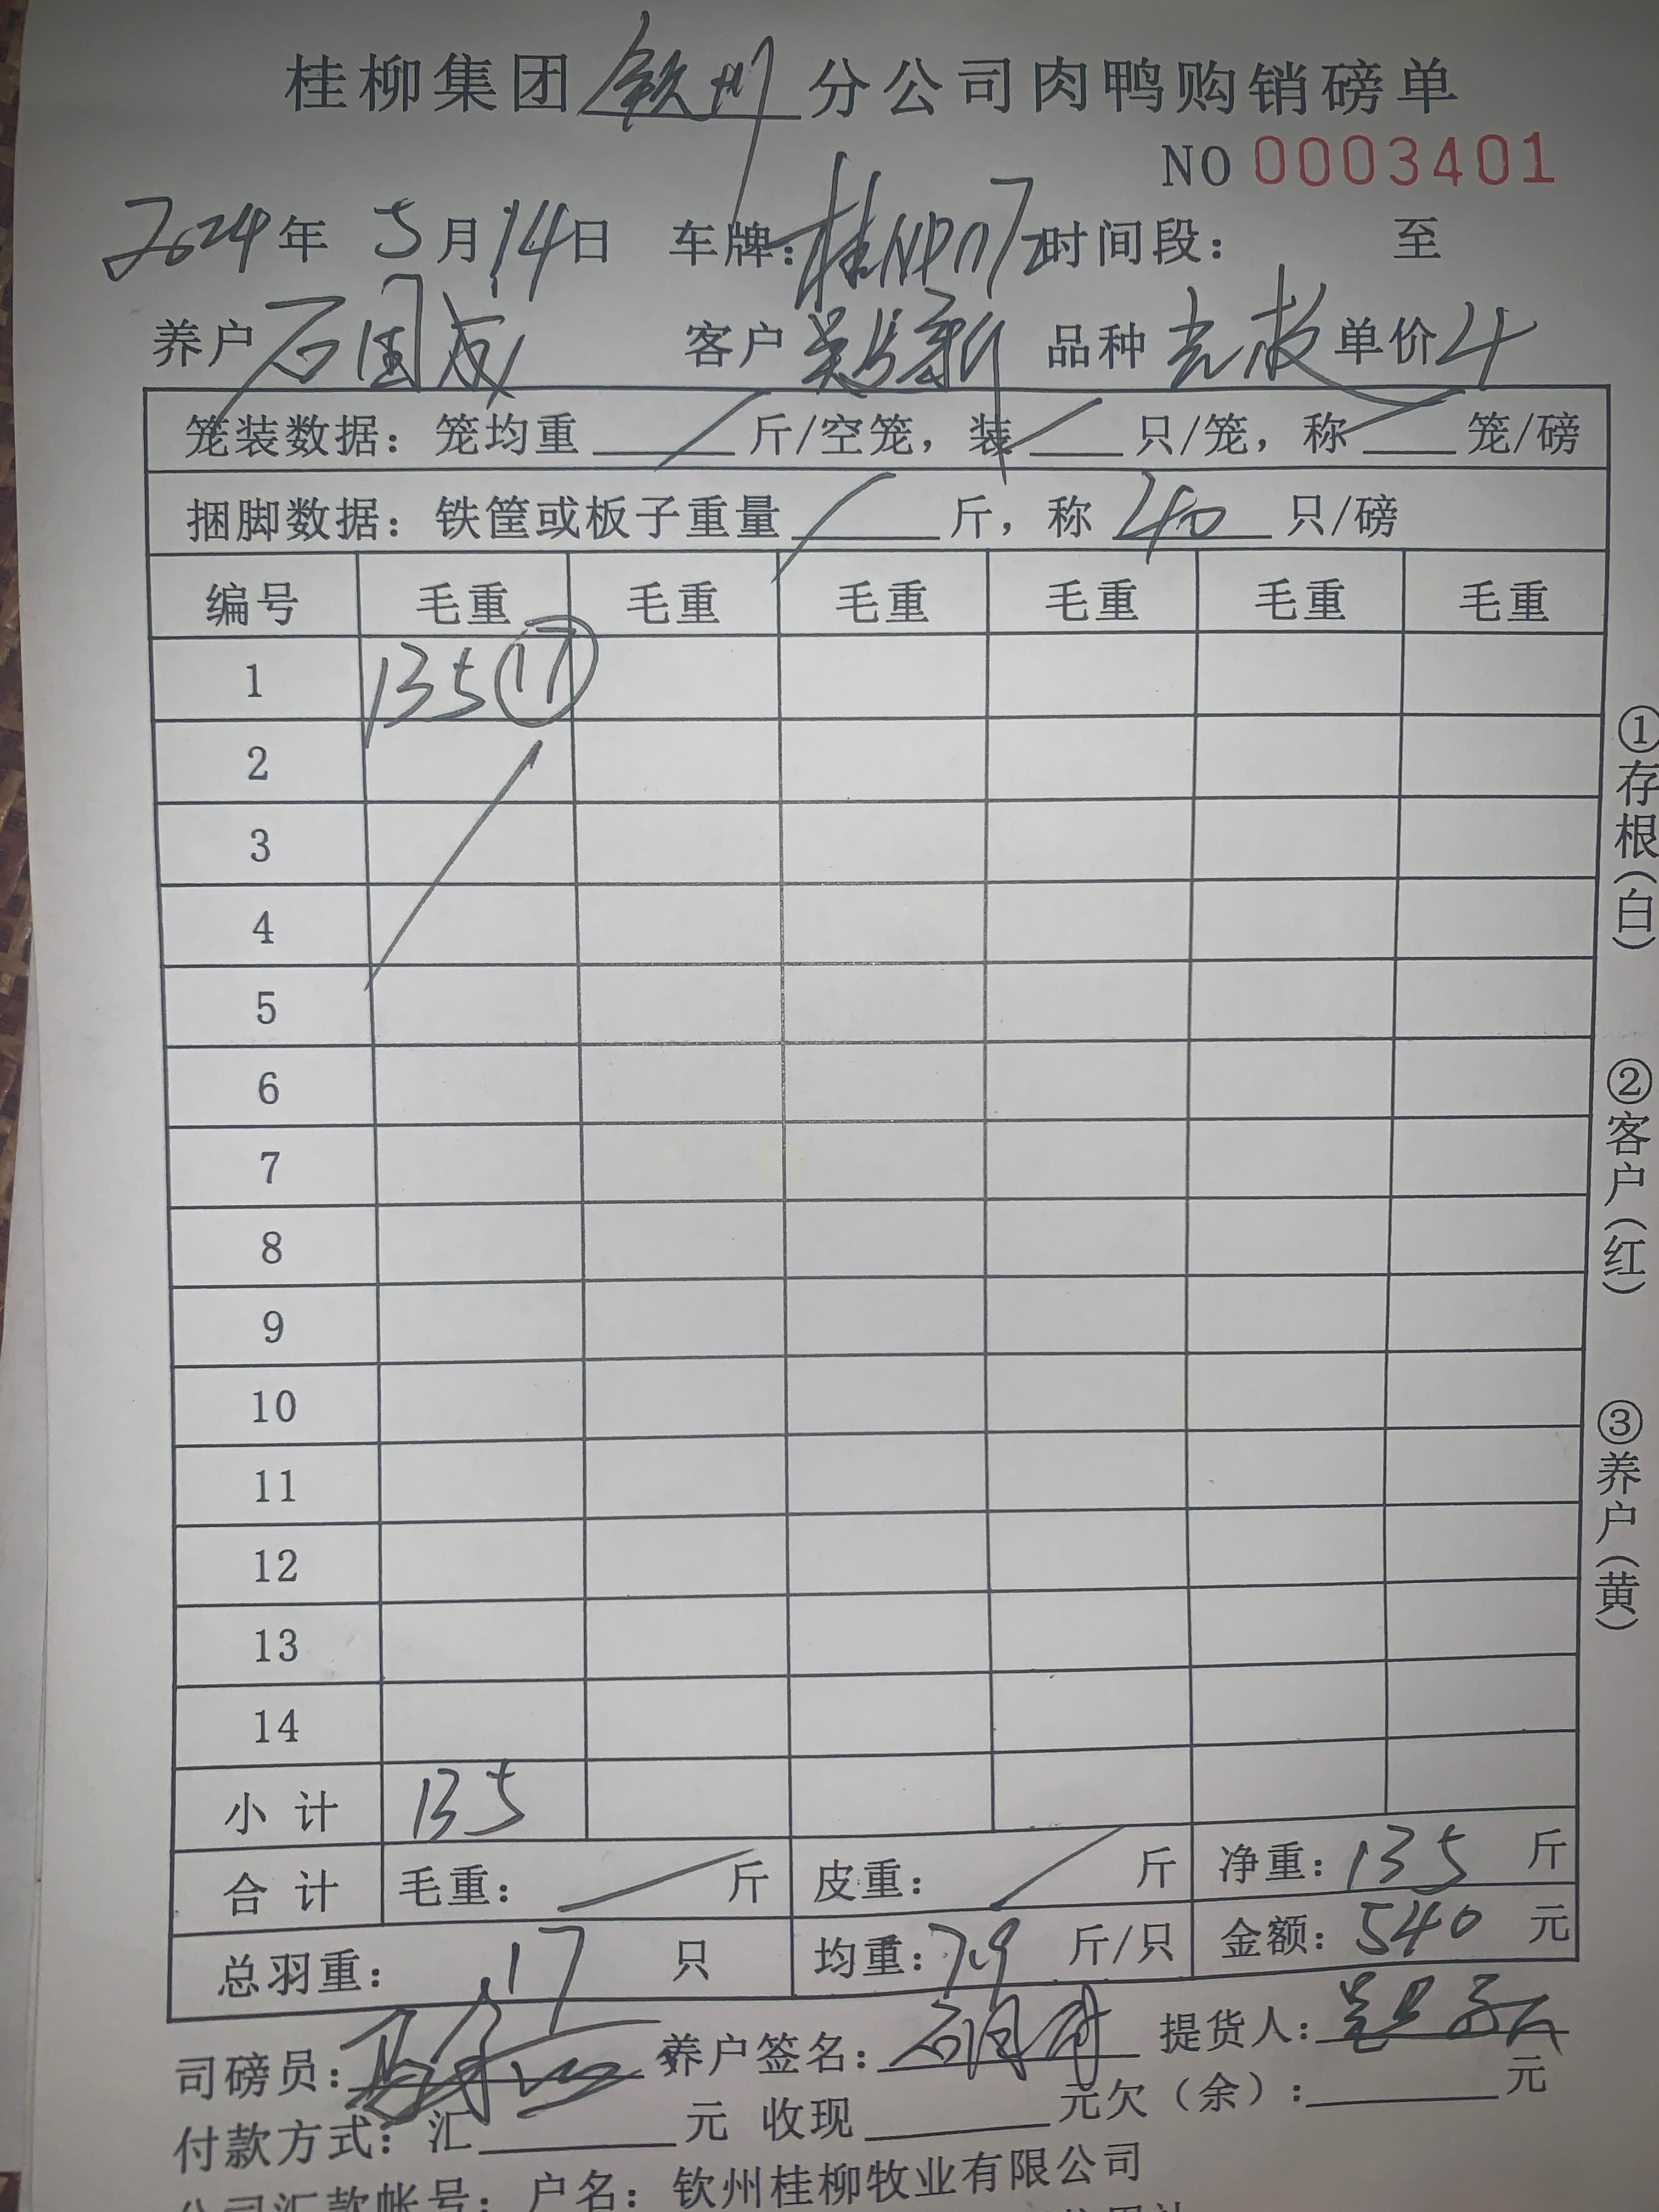 桂柳集团钦州分公司肉鸭购销磅单
NO 0003401
2024年 5月14日 车牌: 时间段: 至
养户 石国成 客户 品种 单价 4
笼装数据: 笼均重 / 斤/空笼, 装 / 只/笼, 称 / 笼/磅
捆脚数据: 铁筐或板子重量 / 斤, 称 40 只/磅
编号 毛重 毛重 毛重 毛重 毛重 毛重
1 135 ⑰
2
3
4
5
6
7
8
9
10
11
12
13
14
小计 135
合计 毛重: / 斤 皮重: / 斤 净重: 135 斤
总羽重: 17 只 均重: 7.9 斤/只 金额: 540 元
司磅员: 养户签名: 提货人:
付款方式: 汇 元 收现 元欠(余): 元
公司汇款帐号: 户名: 钦州桂柳牧业有限公司
①存根(白)
②客户(红)
③养户(黄)